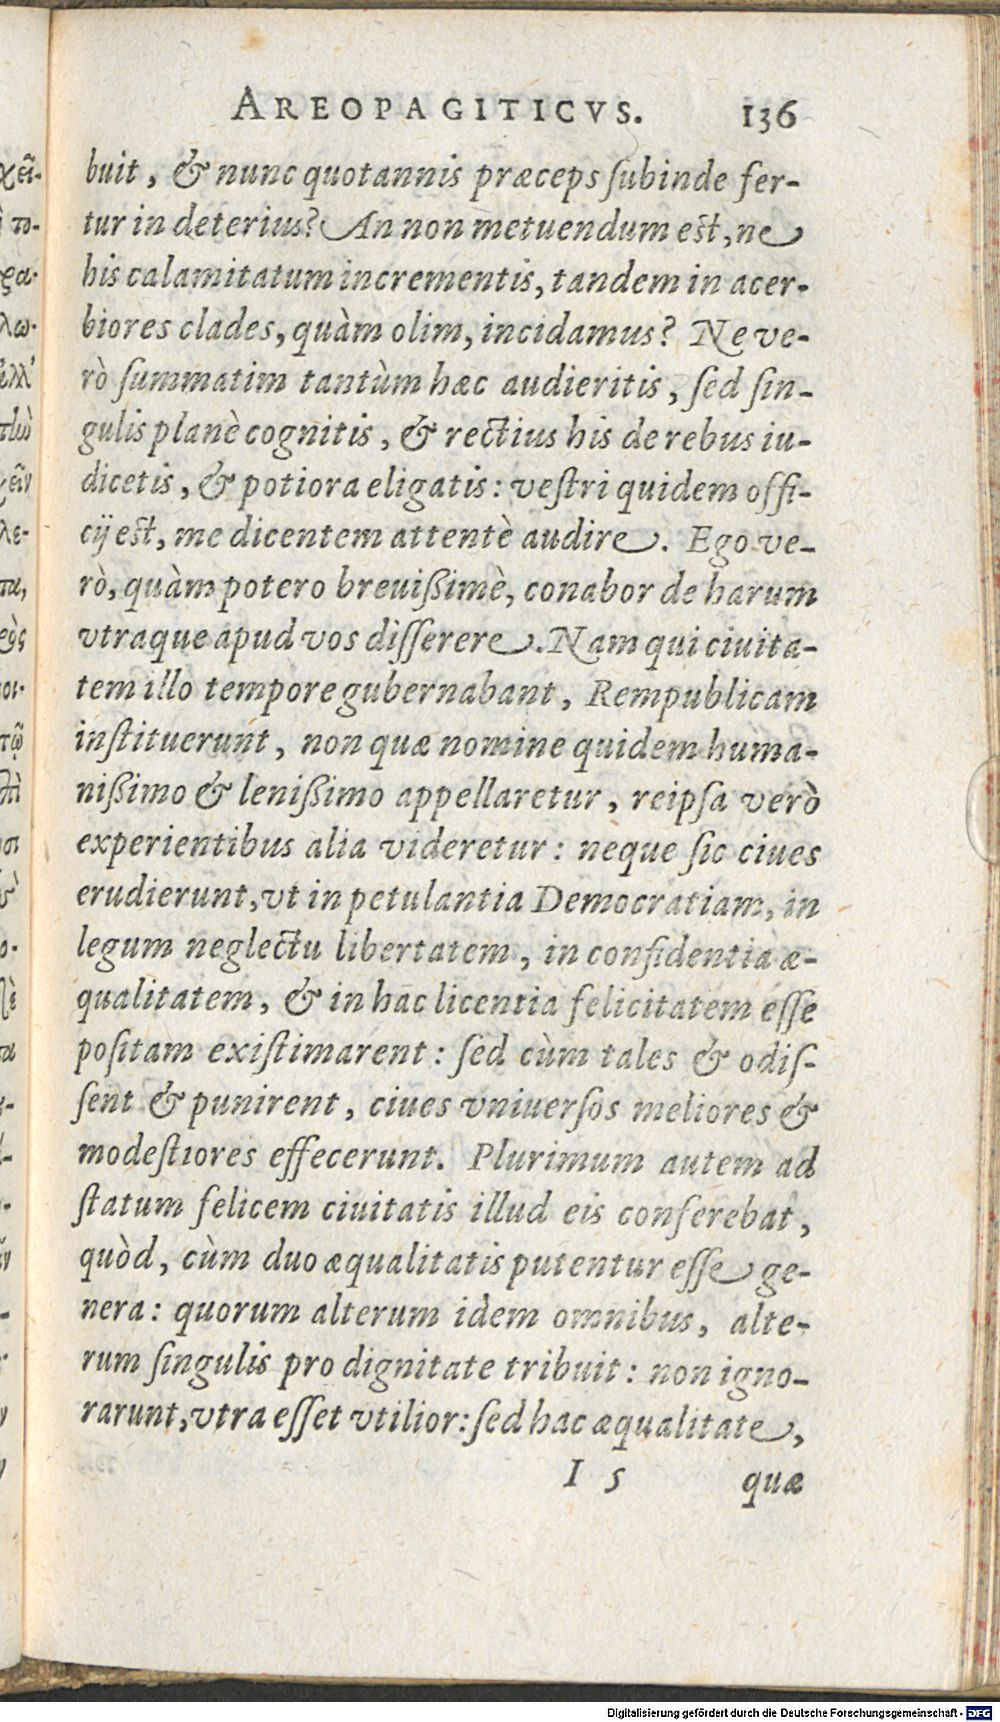 AREOPAGITICVS. 136
buit, & nunc quotannis præceps ſubinde fer-
tur in deterius? An non metuendum eſt, ne
his calamitatum incrementis, tandem in acer-
biores clades, quàm olim, incidamus? Ne ve-
rò ſummatim tantùm hæc audieritis, ſed ſin-
gulis planè cognitis, & rectius his de rebus iu-
dicetis, & potiora eligatis: veſtri quidem offi-
cij eſt, me dicentem attentè audire. Ego ve-
rò, quàm potero breuißimè, conabor de harum
vtraque apud vos diſſerere. Nam qui ciuita-
tem illo tempore gubernabant, Rempublicam
inſtituerunt, non quæ nomine quidem huma-
nißimo & lenißimo appellaretur, reipſa verò
experientibus alia videretur: neque ſic ciues
erudierunt, vt in petulantia Democratiam, in
legum neglectu libertatem, in confidentia æ-
qualitatem, & in hac licentia felicitatem eſſe
poſitam exiſtimarent: ſed cùm tales & odiſ-
ſent & punirent, ciues vniuerſos meliores &
modeſtiores effecerunt. Plurimum autem ad
ſtatum felicem ciuitatis illud eis conferebat,
quòd, cùm duo æqualitatis putentur eſſe ge-
nera: quorum alterum idem omnibus, alte-
rum ſingulis pro dignitate tribuit: non igno-
rarunt, vtra eſſet vtilior: ſed hac æqualitate,
I 5 quæ
Digitalisierung gefördert durch die Deutsche Forschungsgemeinschaft - DFG